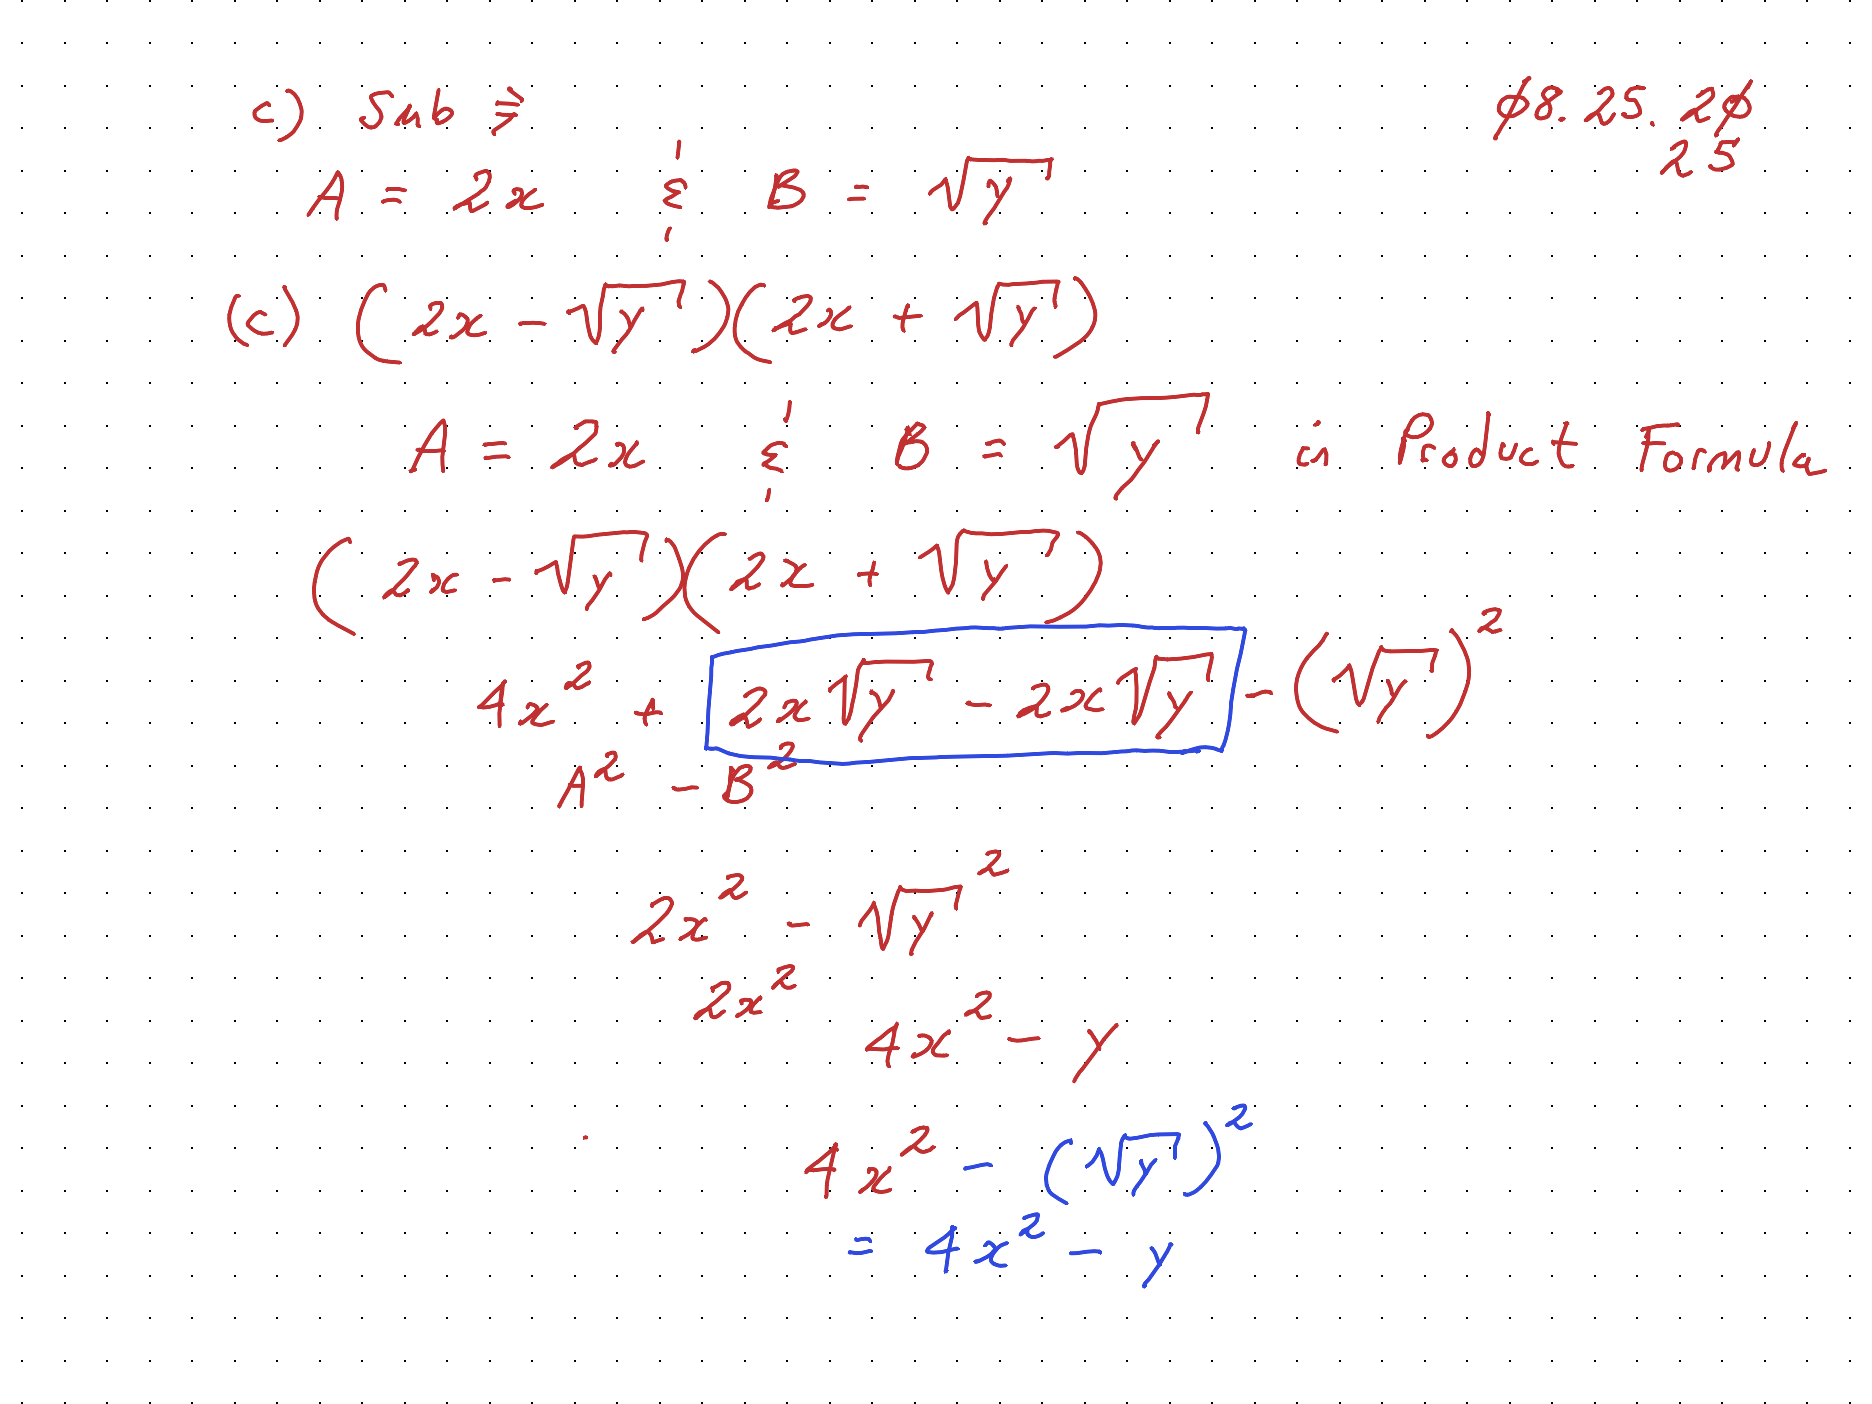 c) Sub ⇒ 08.25.20
25
A = 2x & B = √y
(c) (2x - √y)(2x + √y)
A = 2x & B = √y in Product Formula
(2x - √y)(2x + √y)
4x² + 2x√y - 2x√y - (√y)²
A² - B²
2x² - √y²
2x²
4x² - y
4x² - (√y)²
= 4x² - y